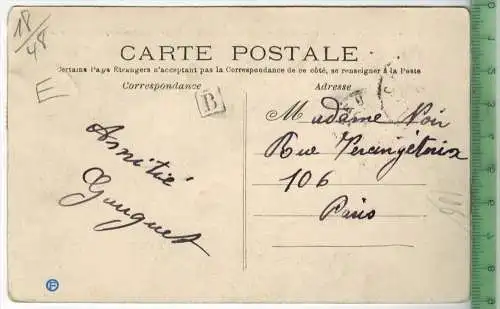 18/48
E
CARTE POSTALE
Certains Pays Etrangers n'acceptent pas la Correspondance de ce côté, se renseigner à la Poste
Correspondance
Adresse
B
Amitié
Madame Noir
Rue Vercingétorix
106
Paris
106